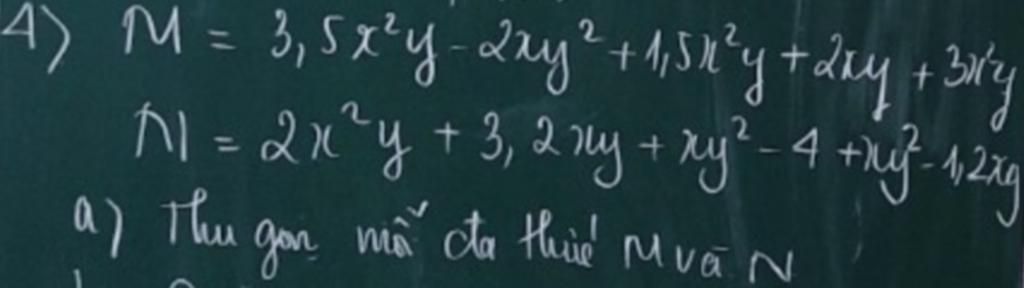 4) M = 3,5x²y - 2xy² + 1,5x²y + 2xy + 3x²y
N = 2x²y + 3,2xy + xy² - 4 + xy² - 1,2xy
a) Thu gọn mỗi đa thức M và N